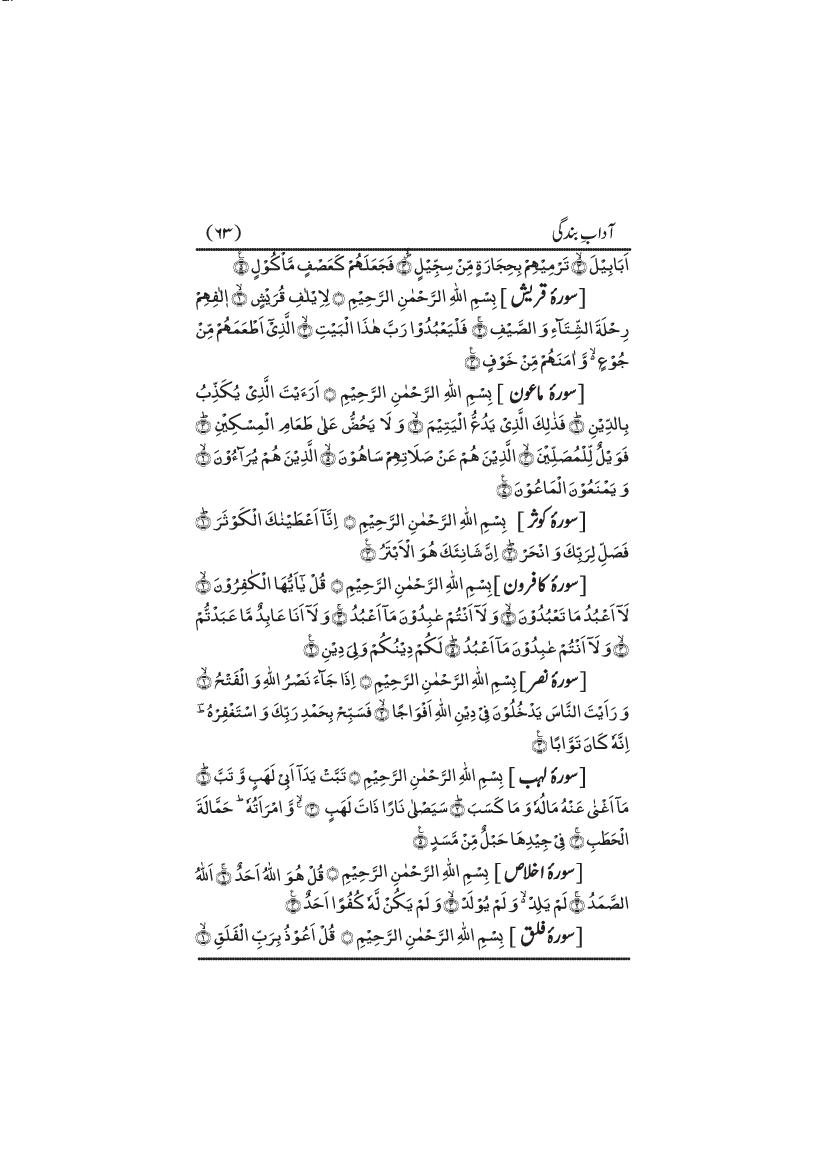 آدابِ بندگی (۶۳)
اَبَابِیْلَ ۙ﴿۳﴾ تَرْمِیْهِمْ بِحِجَارَةٍ مِّنْ سِجِّیْلٍ ۪ۙ﴿۴﴾ فَجَعَلَهُمْ كَعَصْفٍ مَّاْكُوْلٍ ۠﴿۵﴾
[سورۂ قریش] بِسْمِ اللهِ الرَّحْمٰنِ الرَّحِیْمِ ۝ لِاِیْلٰفِ قُرَیْشٍ ۙ﴿۱﴾ اٖلٰفِهِمْ
رِحْلَةَ الشِّتَآءِ وَ الصَّیْفِ ۚ﴿۲﴾ فَلْیَعْبُدُوْا رَبَّ هٰذَا الْبَیْتِ ۙ﴿۳﴾ الَّذِیْۤ اَطْعَمَهُمْ مِّنْ
جُوْعٍ ۙ۬ وَّ اٰمَنَهُمْ مِّنْ خَوْفٍ ۠﴿۴﴾
[سورۂ ماعون] بِسْمِ اللهِ الرَّحْمٰنِ الرَّحِیْمِ ۝ اَرَءَیْتَ الَّذِیْ یُكَذِّبُ
بِالدِّیْنِ ؕ﴿۱﴾ فَذٰلِكَ الَّذِیْ یَدُعُّ الْیَتِیْمَ ۙ﴿۲﴾ وَ لَا یَحُضُّ عَلٰی طَعَامِ الْمِسْكِیْنِ ؕ﴿۳﴾
فَوَیْلٌ لِّلْمُصَلِّیْنَ ۙ﴿۴﴾ الَّذِیْنَ هُمْ عَنْ صَلَاتِهِمْ سَاهُوْنَ ۙ﴿۵﴾ الَّذِیْنَ هُمْ یُرَآءُوْنَ ۙ﴿۶﴾
وَ یَمْنَعُوْنَ الْمَاعُوْنَ ۠﴿۷﴾
[سورۂ کوثر] بِسْمِ اللهِ الرَّحْمٰنِ الرَّحِیْمِ ۝ اِنَّاۤ اَعْطَیْنٰكَ الْكَوْثَرَ ؕ﴿۱﴾
فَصَلِّ لِرَبِّكَ وَ انْحَرْ ؕ﴿۲﴾ اِنَّ شَانِئَكَ هُوَ الْاَبْتَرُ ۠﴿۳﴾
[سورۂ کافرون] بِسْمِ اللهِ الرَّحْمٰنِ الرَّحِیْمِ ۝ قُلْ یٰۤاَیُّهَا الْكٰفِرُوْنَ ۙ﴿۱﴾
لَاۤ اَعْبُدُ مَا تَعْبُدُوْنَ ۙ﴿۲﴾ وَ لَاۤ اَنْتُمْ عٰبِدُوْنَ مَاۤ اَعْبُدُ ۚ﴿۳﴾ وَ لَاۤ اَنَا عَابِدٌ مَّا عَبَدْتُّمْ
ۙ﴿۴﴾ وَ لَاۤ اَنْتُمْ عٰبِدُوْنَ مَاۤ اَعْبُدُ ؕ﴿۵﴾ لَكُمْ دِیْنُكُمْ وَلِیَ دِیْنِ ۠﴿۶﴾
[سورۂ نصر] بِسْمِ اللهِ الرَّحْمٰنِ الرَّحِیْمِ ۝ اِذَا جَآءَ نَصْرُ اللهِ وَ الْفَتْحُ ۙ﴿۱﴾
وَ رَاَیْتَ النَّاسَ یَدْخُلُوْنَ فِیْ دِیْنِ اللهِ اَفْوَاجًا ۙ﴿۲﴾ فَسَبِّحْ بِحَمْدِ رَبِّكَ وَ اسْتَغْفِرْهُ ؔؕ
اِنَّهٗ كَانَ تَوَّابًا ۠﴿۳﴾
[سورۂ لہب] بِسْمِ اللهِ الرَّحْمٰنِ الرَّحِیْمِ ۝ تَبَّتْ یَدَاۤ اَبِیْ لَهَبٍ وَّ تَبَّ ؕ﴿۱﴾
مَاۤ اَغْنٰی عَنْهُ مَالُهٗ وَ مَا كَسَبَ ؕ﴿۲﴾ سَیَصْلٰی نَارًا ذَاتَ لَهَبٍ ﴿۳﴾ ۚۖ وَّ امْرَاَتُهٗ ؕ حَمَّالَةَ
الْحَطَبِ ۚ﴿۴﴾ فِیْ جِیْدِهَا حَبْلٌ مِّنْ مَّسَدٍ ۠﴿۵﴾
[سورۂ اخلاص] بِسْمِ اللهِ الرَّحْمٰنِ الرَّحِیْمِ ۝ قُلْ هُوَ اللهُ اَحَدٌ ۚ﴿۱﴾ اَللهُ
الصَّمَدُ ۚ﴿۲﴾ لَمْ یَلِدْ ۙ۬ وَ لَمْ یُوْلَدْ ۙ﴿۳﴾ وَ لَمْ یَكُنْ لَّهٗ كُفُوًا اَحَدٌ ۠﴿۴﴾
[سورۂ فلق] بِسْمِ اللهِ الرَّحْمٰنِ الرَّحِیْمِ ۝ قُلْ اَعُوْذُ بِرَبِّ الْفَلَقِ ۙ﴿۱﴾